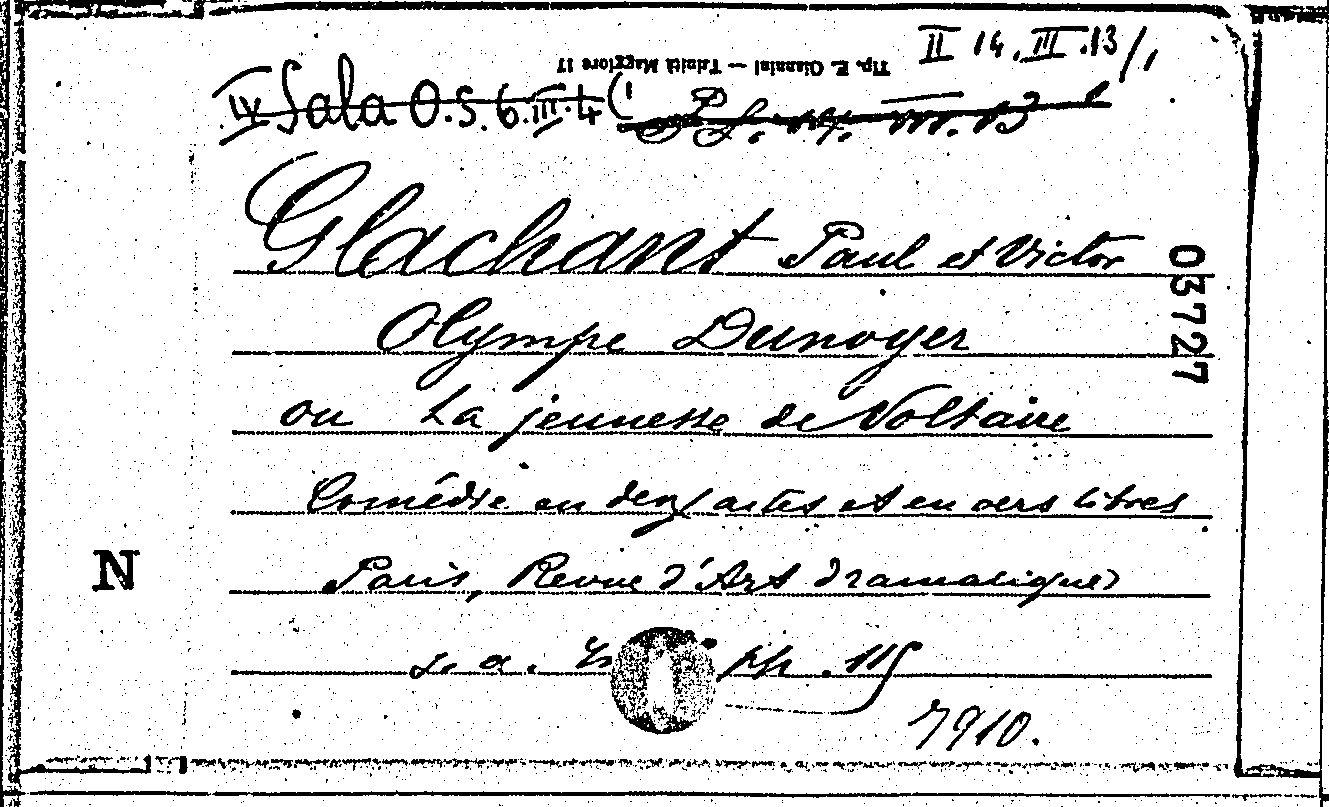 II 14.III.13/1
Tip. E. Giannini — Trinità Maggiore 17
IV Sala O.5.6.III.4(1
Glachant Paul et Victor
03727
Olympe Dunoyer
ou La jeunesse de Voltaire
Comédie en deux actes et en vers libres
N
Paris, Revue d'Art dramatique
s. a. pp. 115
7910.